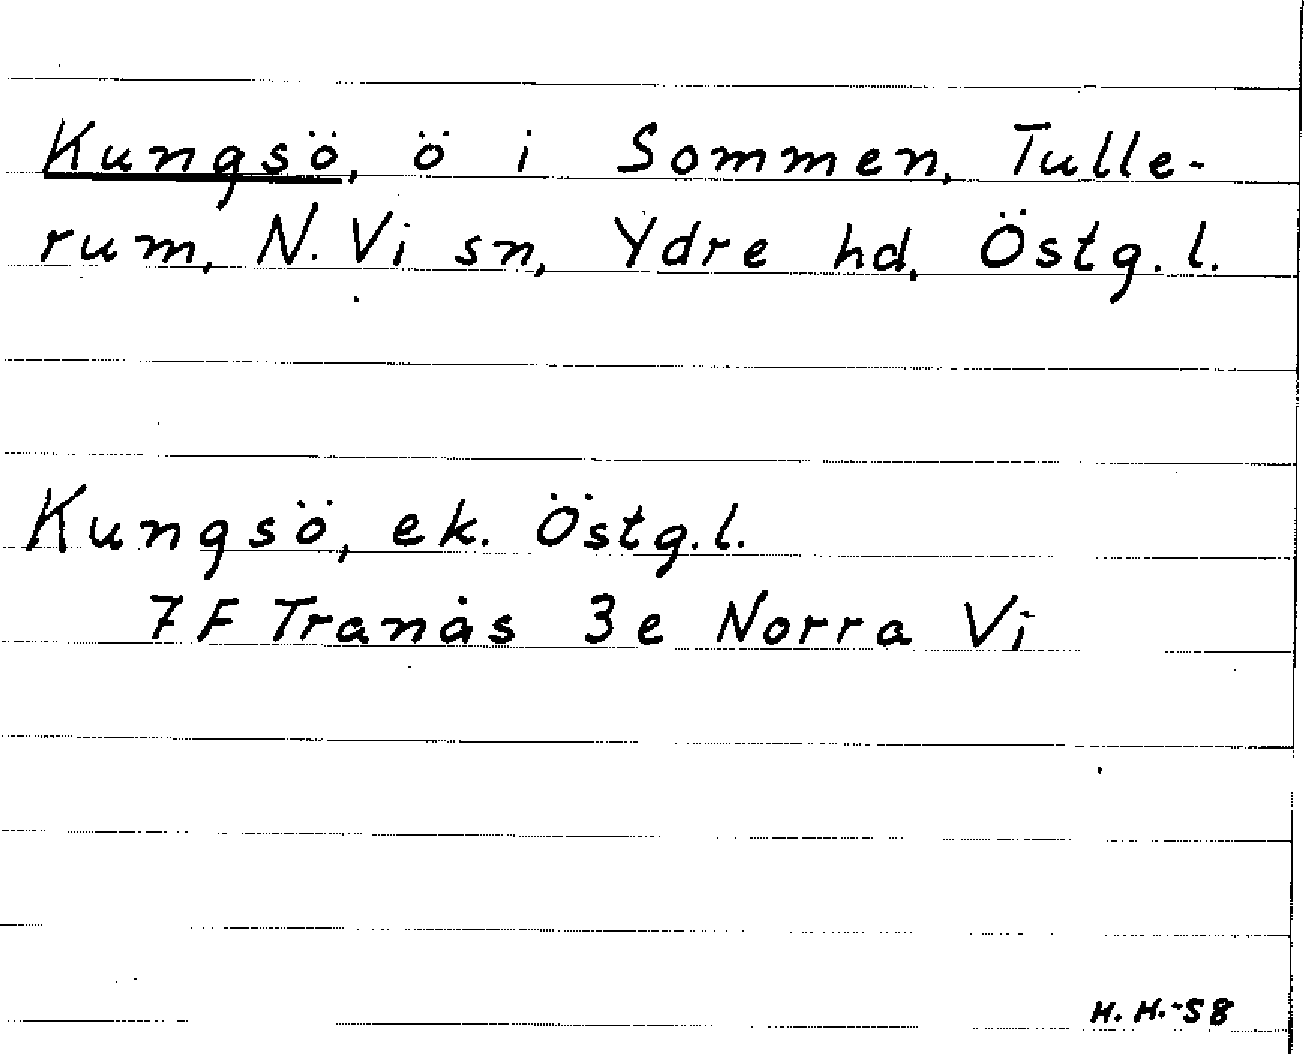 Kungsö, ö i Sommen, Tulle-
rum, N. Vi sn, Ydre hd, Östg. l.
Kungsö, ek. Östg. l.
7 F Tranås 3e Norra Vi
H. H.-58